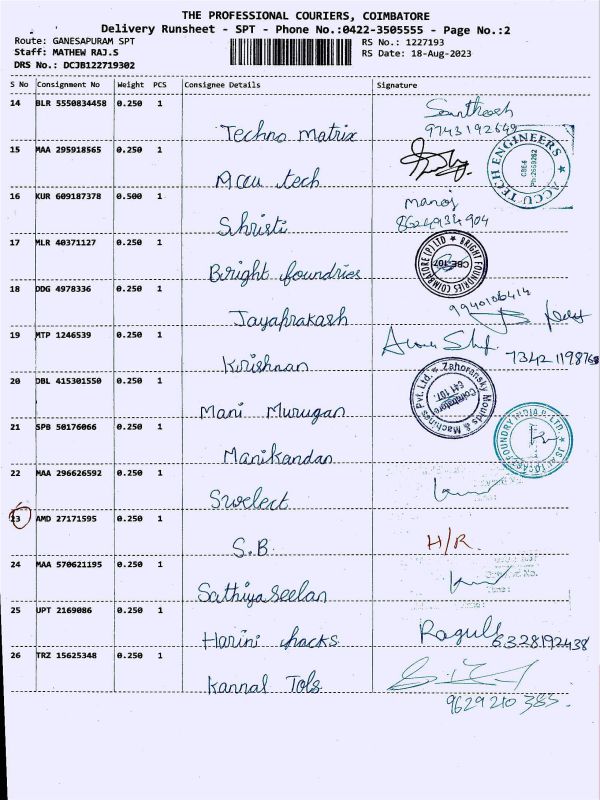 THE PROFESSIONAL COURIERS, COIMBATORE
Delivery Runsheet - SPT - Phone No.:0422-3505555 - Page No.:2
Route: GANESAPURAM SPT RS No.: 1227193
Staff: MATHEW RAJ.S RS Date: 18-Aug-2023
DRS No.: DCJB122719302
S No Consignment No Weight PCS Consignee Details Signature
14 BLR 5550834458 0.250 1 Techno matrix Santhosh
9743192649
15 MAA 295918565 0.250 1 Accu tech
ACCU TECH ENGINEERS
16 KUR 609187378 0.500 1 Shristi manoj
8624934904
17 MLR 40371127 0.250 1 Bright foundries
BRIGHT FOUNDRIES COIMBATORE (P) LTD CBE-107
18 DDG 4978336 0.250 1 Jayaprakash 9940106414
19 MTP 1246539 0.250 1 Krishnan
20 DBL 415301550 0.250 1 Mani Murugan
Zahoransky Moulds & Machines Pvt. Ltd. Coimbatore 641 107.
21 SPB 50176066 0.250 1 Manikandan
22 MAA 296626592 0.250 1 Swelect
23 AMD 27171595 0.250 1 S.B. H/R.
24 MAA 570621195 0.250 1 Sathiyaseelan
25 UPT 2169086 0.250 1 Harini hacks Ragull
6328192438
26 TRZ 15625348 0.250 1 Kannal Tols
9629210383.